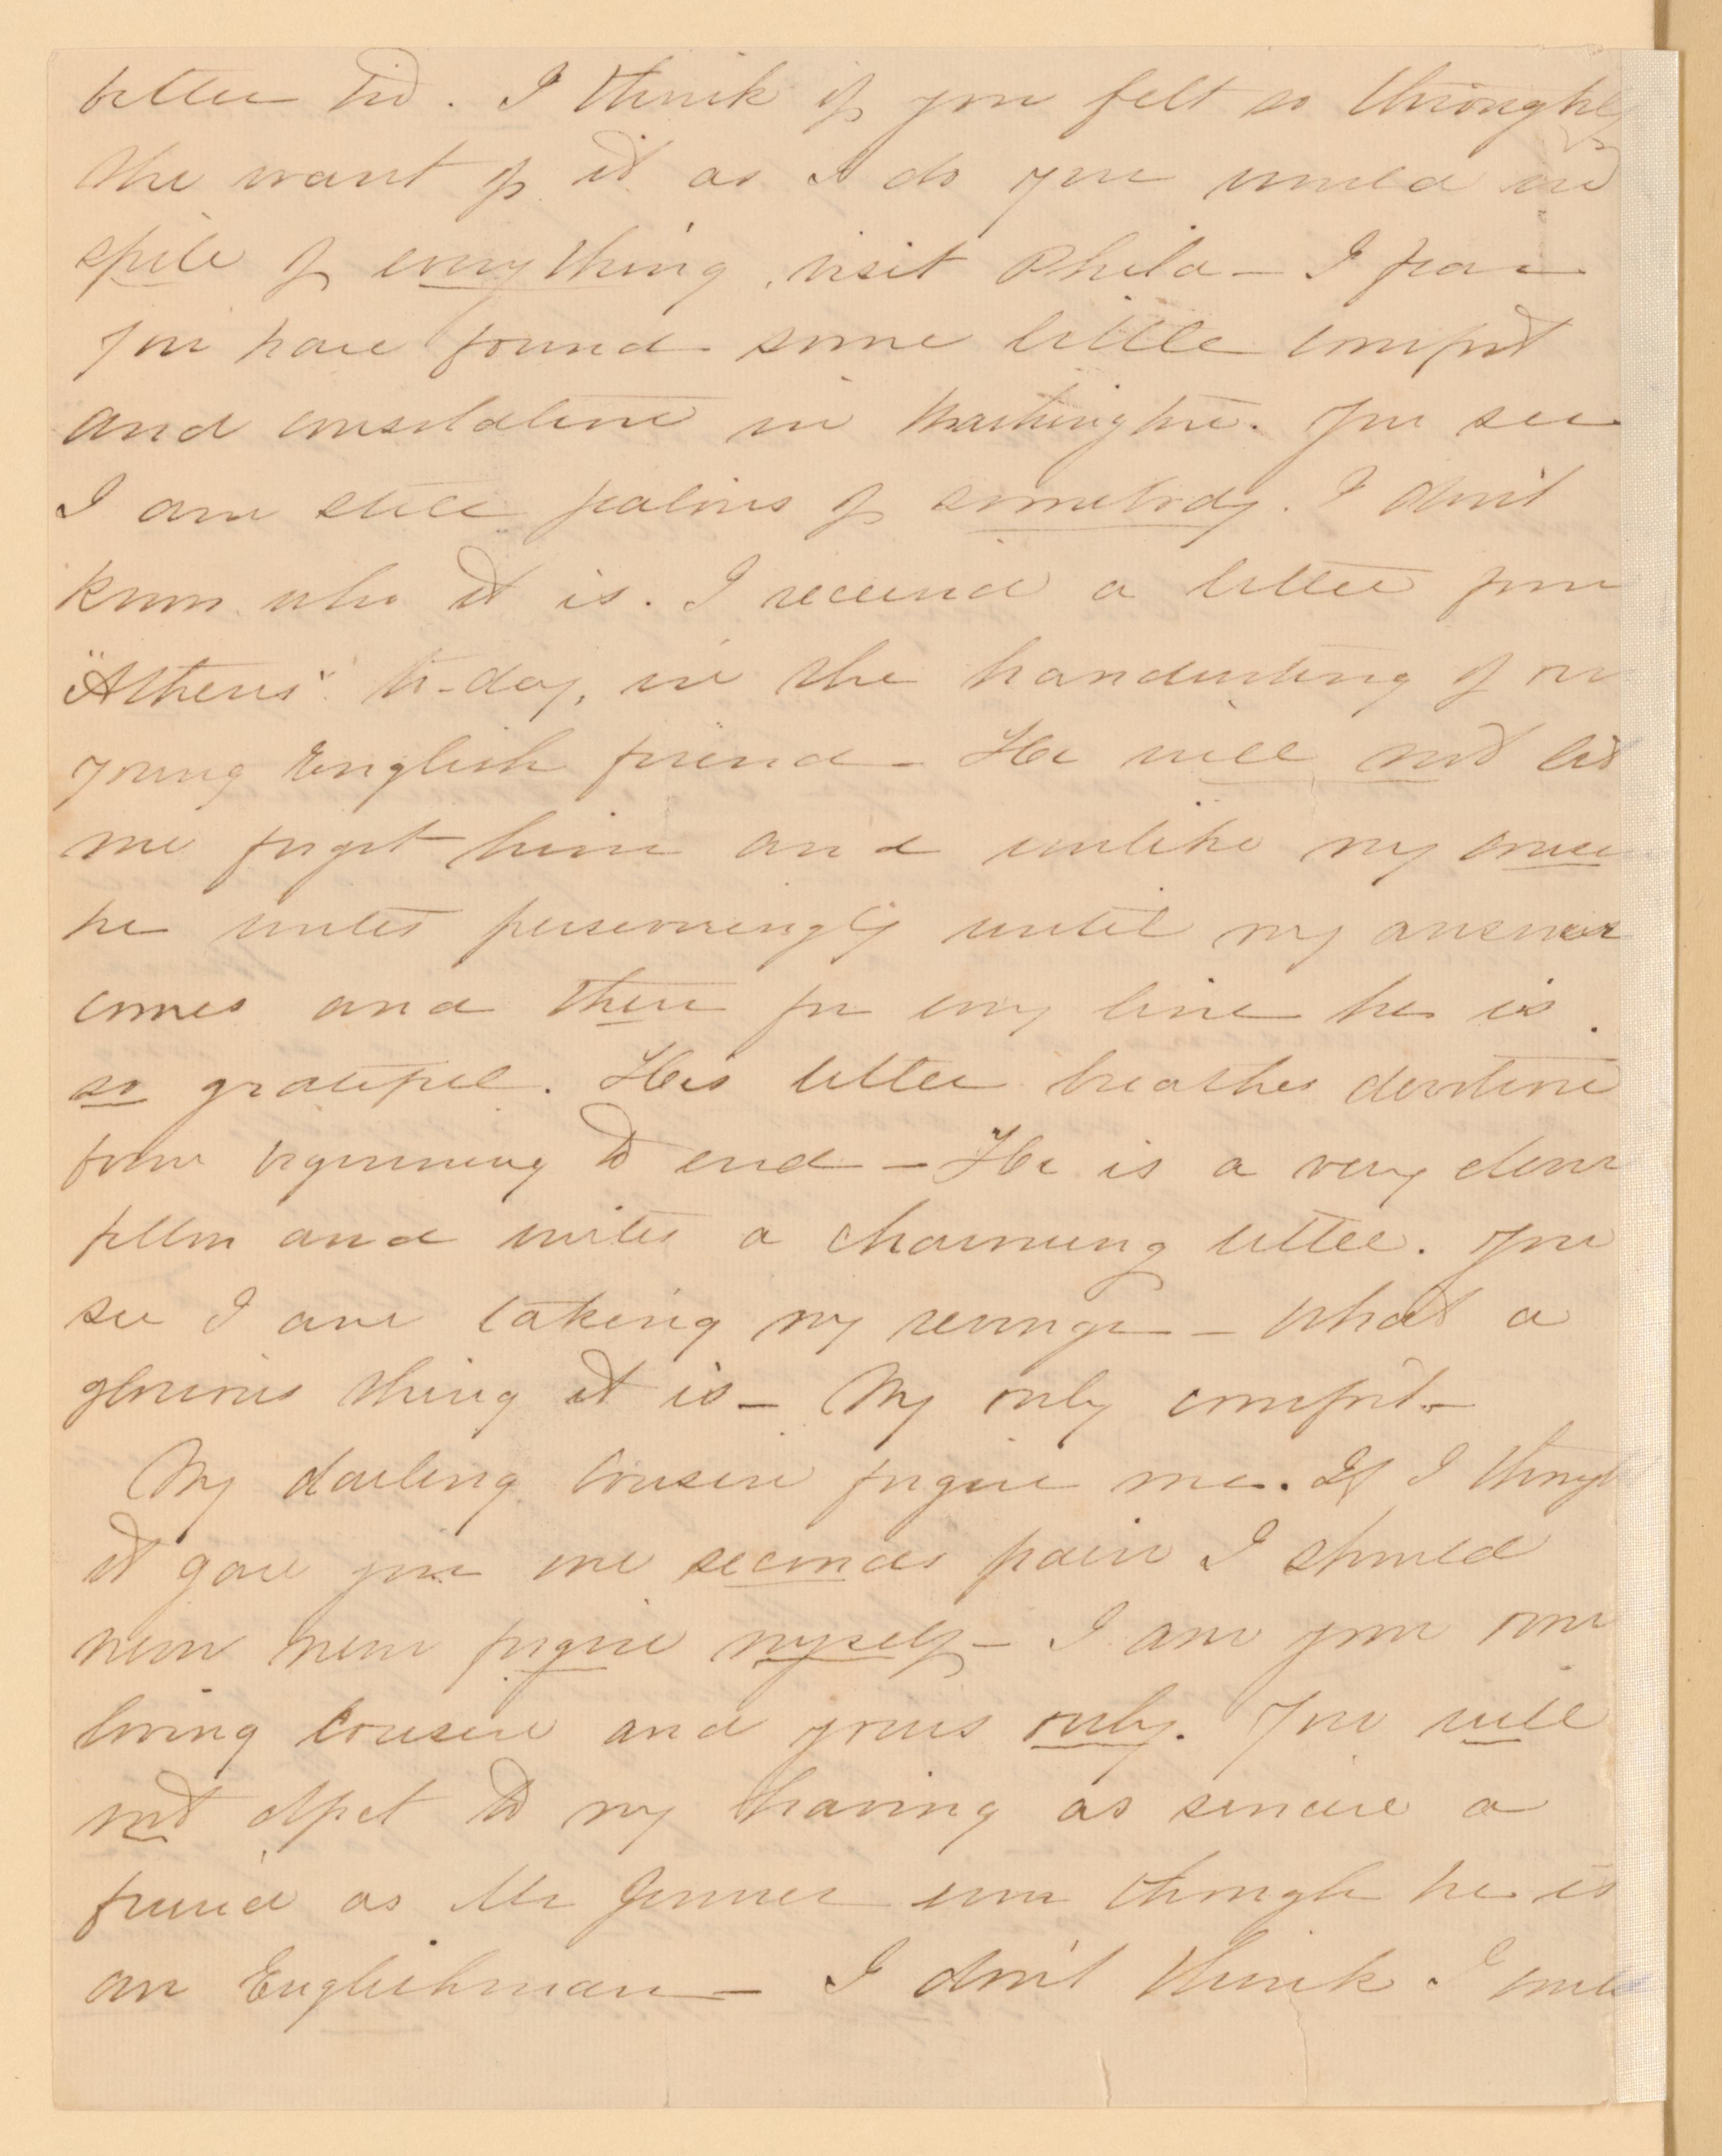 better   . I think if you felt so throughly
the want of it as I do you would in
spite of everything, visit Phila — I fear
you have found some little comfort
and consolation in Washington. You see
I am still jealous of somebody. I don't
know who it is. I received a letter from
"Athens" to-day, in the handwriting of our
young English friend — He will not let
me forget him and unlike my cousin
he writes perseveringly until my answer
comes and then for every line he is
so grateful. His letter breathes devotion
from beginning to end — He is a very clever
fellow and writes a charming letter. You
see I am taking my revenge — What a
glorious thing it is — My only comfort —
My darling Cousin forgive me. If I thought
it gave you one seconds pain I should
never never forgive myself — I am your own
loving Cousin and yours only. You will
not object to my having as sincere a
friend as Mr Jenner even though he is
an Englishman — I don't think I could